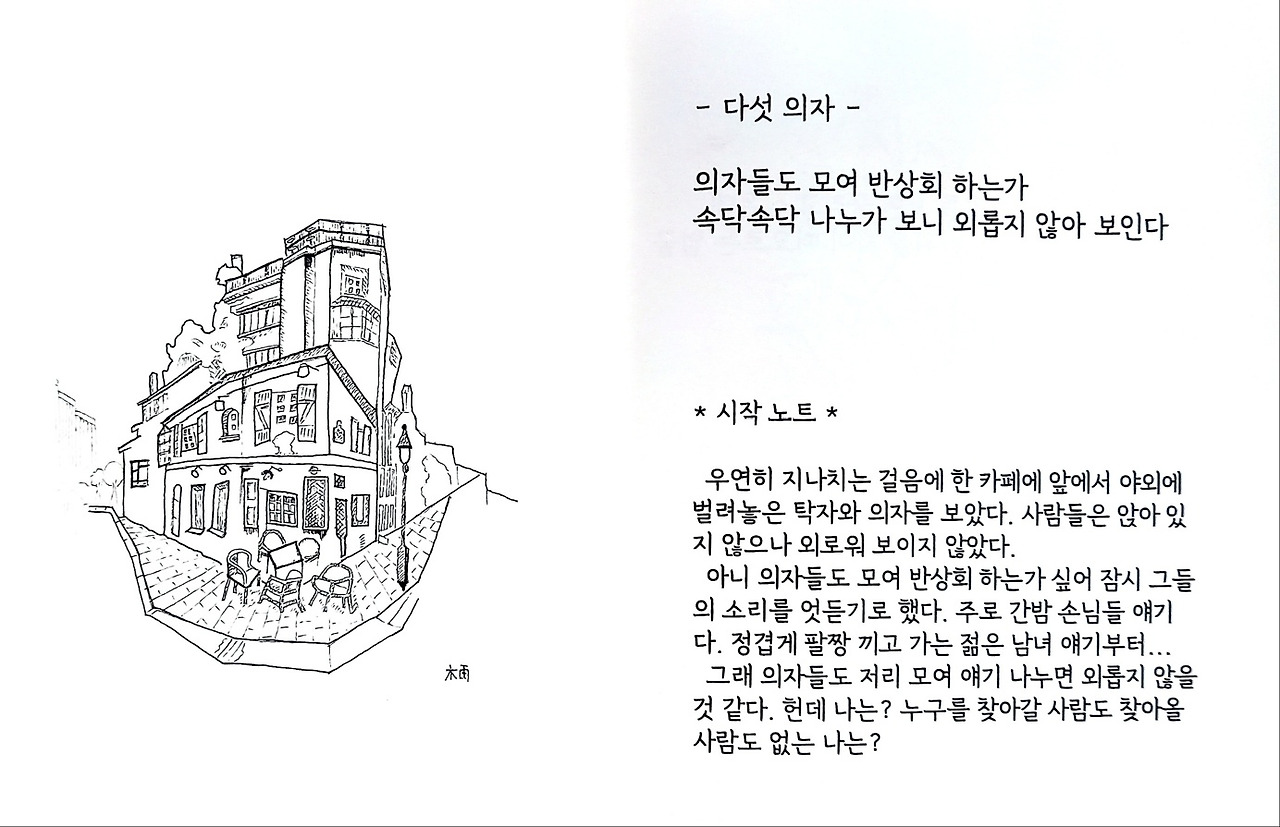 - 다섯 의자 -
의자들도 모여 반상회 하는가
속닥속닥 나누가 보니 외롭지 않아 보인다
* 시작 노트 *
우연히 지나치는 걸음에 한 카페에 앞에서 야외에
벌려놓은 탁자와 의자를 보았다. 사람들은 앉아 있
지 않으나 외로워 보이지 않았다.
아니 의자들도 모여 반상회 하는가 싶어 잠시 그들
의 소리를 엇듣기로 했다. 주로 간밤 손님들 얘기
다. 정겹게 팔짱 끼고 가는 젊은 남녀 얘기부터...
그래 의자들도 저리 모여 얘기 나누면 외롭지 않을
것 같다. 헌데 나는? 누구를 찾아갈 사람도 찾아올
사람도 없는 나는?
木雨